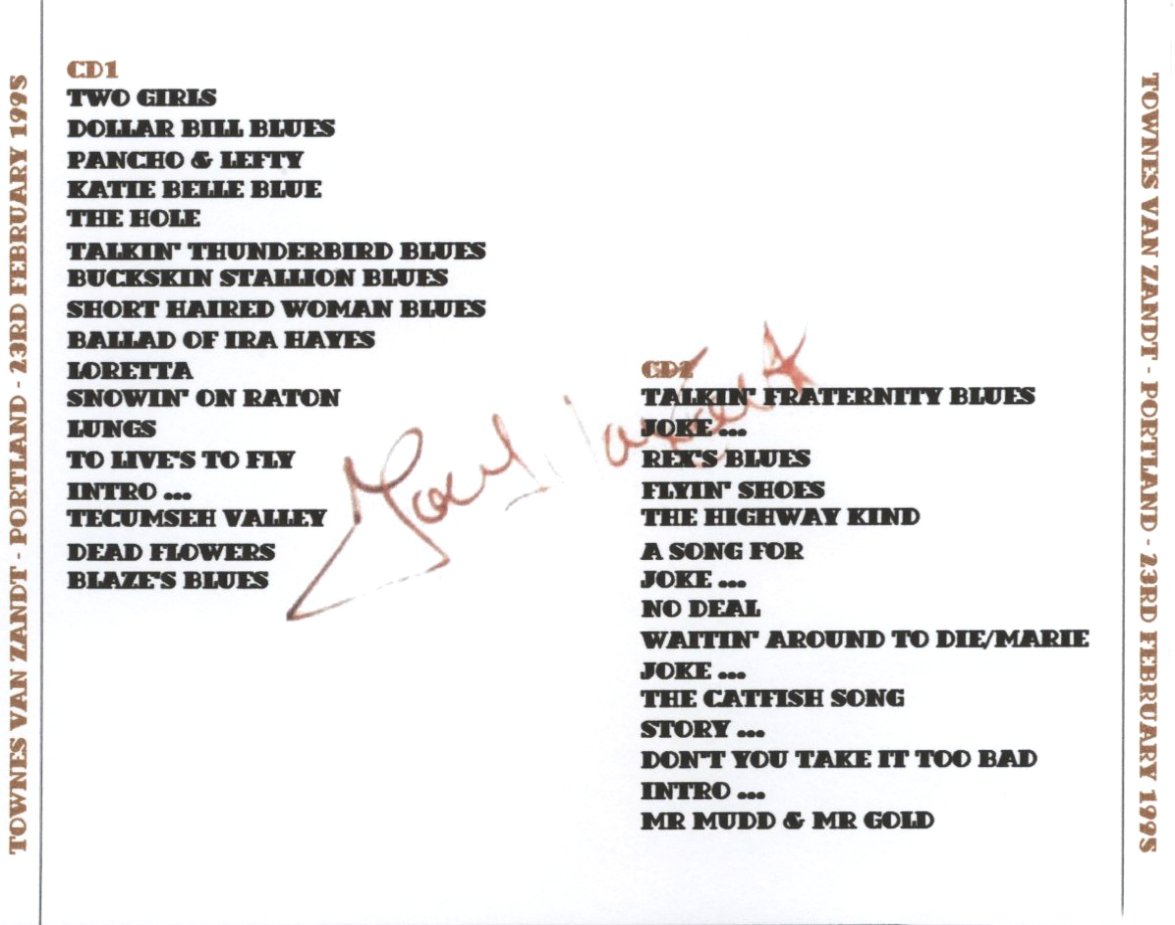 TOWNES VAN ZANDT - PORTLAND - 23RD FEBRUARY 1995
CD1
TWO GIRLS
DOLLAR BILL BLUES
PANCHO & LEFTY
KATIE BELLE BLUE
THE HOLE
TALKIN' THUNDERBIRD BLUES
BUCKSKIN STALLION BLUES
SHORT HAIRED WOMAN BLUES
BALLAD OF IRA HAYES
LORETTA
SNOWIN' ON RATON
LUNGS
TO LIVE'S TO FLY
INTRO ...
TECUMSEH VALLEY
DEAD FLOWERS
BLAZE'S BLUES
CD2
TALKIN' FRATERNITY BLUES
JOKE ...
REX'S BLUES
FLYIN' SHOES
THE HIGHWAY KIND
A SONG FOR
JOKE ...
NO DEAL
WAITIN' AROUND TO DIE/MARIE
JOKE ...
THE CATFISH SONG
STORY ...
DON'T YOU TAKE IT TOO BAD
INTRO ...
MR MUDD & MR GOLD
TOWNES VAN ZANDT - PORTLAND - 23RD FEBRUARY 1995